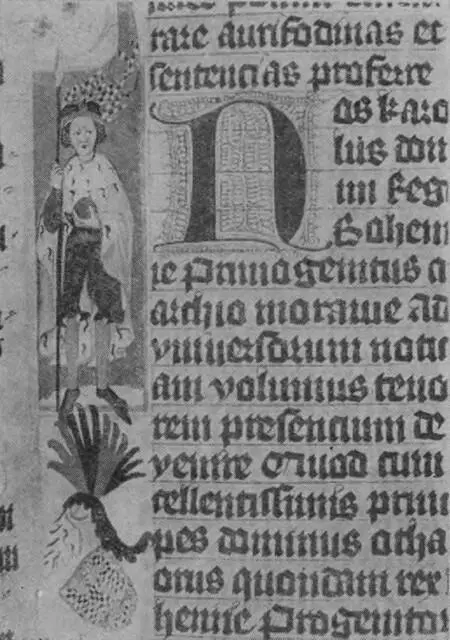 rare aurifodinas et
sentencias proferre
Nos karo
lus dom
ini Reg
Bohem
ie Primogenitus
archio morauie Ad
vniuersorum noti
am volumus teno
rem presencium de
venire Quod cum
cellentissimus prin
pes dominus otha
quondam rex
hemie Progenitor